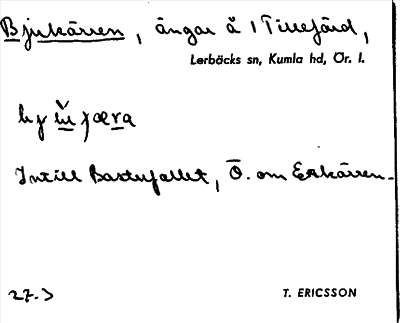 Bjukärren, ängar å 1 Tillefärd,
Lerbäcks sn, Kumla hd, Ör. l.
Intill Bastufallet, Ö. om Erkärren.
27.3
T. ERICSSON